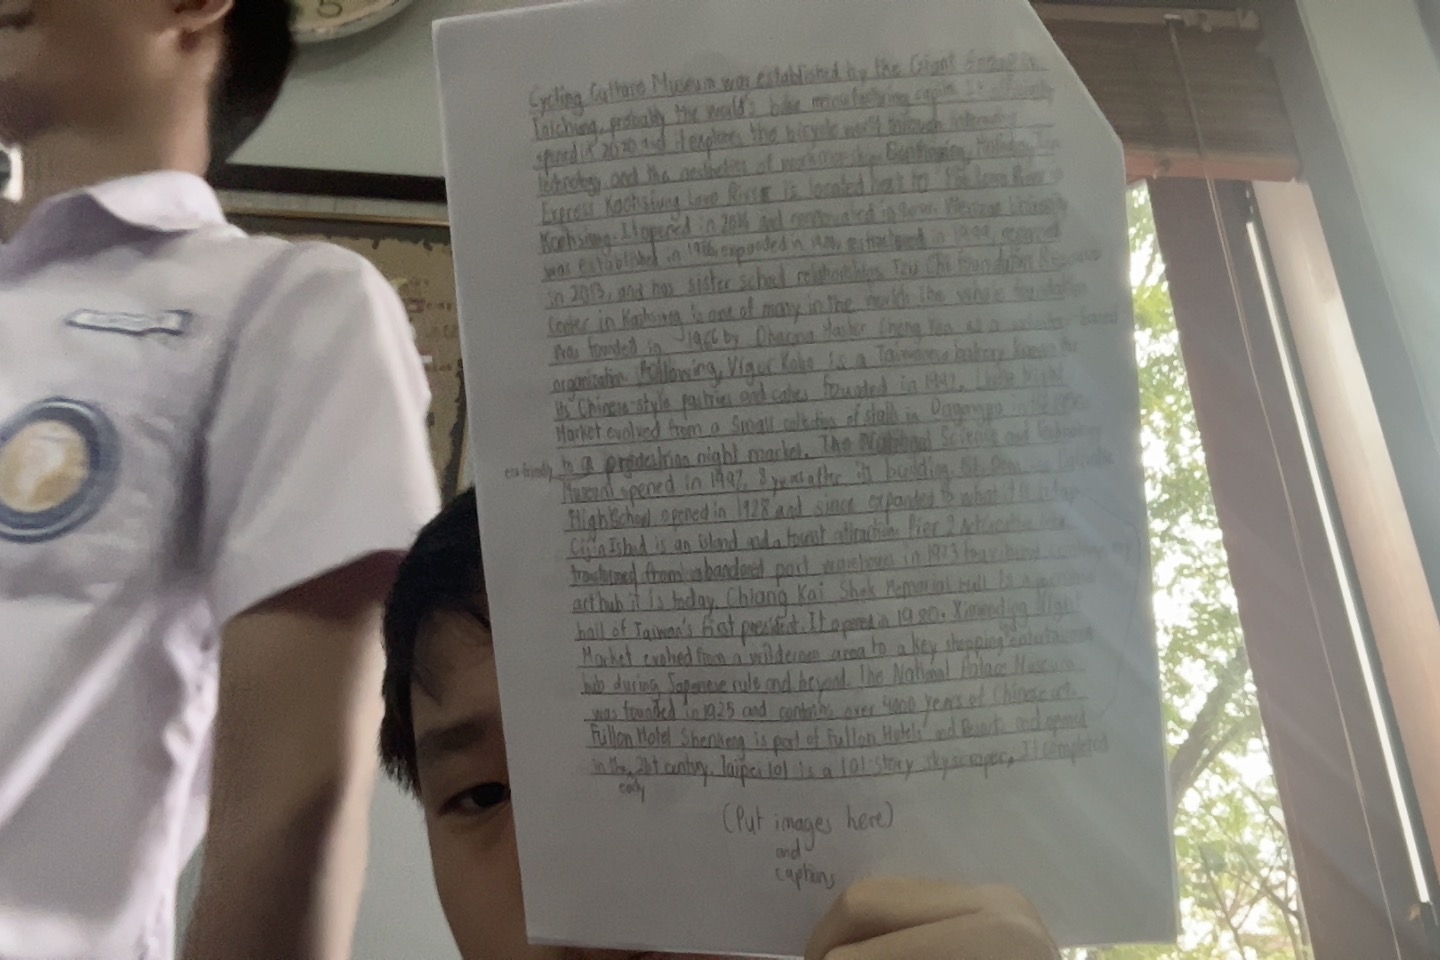 5
Cycling Culture Museum was established by the Giant
Taichung, probably the world's bike manufacturing capital. It officially
opened in 2020 and it explores the bicycle world through interactive
technology and the aesthetics of workmanship. Continuing, Holiday Inn
Express Kaohsiung Love River is located next to the Love River
Kaohsiung. It opened in 2016 and
was established in 1966, expanded in in 1999, renamed
in 2013, and has sister school relationships. Tzu Chi Foundation
Center in Kaohsiung is one of many in the world. The whole foundation
was founded in 1966 by Dharma Master Cheng Yen as a
organization. Following, Vigor Kobo is a Taiwanese bakery known for
its Chinese-style pastries and cakes founded in 1992. Liuhe Night
Market evolved from a small collection of stalls in Dagangpu in
eco-friendly
to a predestrian night market. The National Science and Technology
Museum opened in 1997, 8 years after its building. St. Dominic Catholic
High School opened in 1928 and since expanded to what it is today
Cijin Island is an island and a tourist attraction. Pier 2 Art
transformed from abandoned port warehouses in 1973 to
art hub it is today. Chiang Kai Shek Memorial Hall is a memorial
hall of Taiwan's first president. It opened in 1980. Ximending Night
Market evolved from a wilderness area to a key shopping entertainment
hub during Japanese rule and beyond. The National Palace Museum
was founded in 1925 and contains over 4000 years of Chinese art.
Fullon Hotel Shenkeng is part of Fullon Hotels and Resorts and opened
in the 21st century. Taipei 101 is a 101 story skyscraper. It completed
early
(Put images here)
and
captions